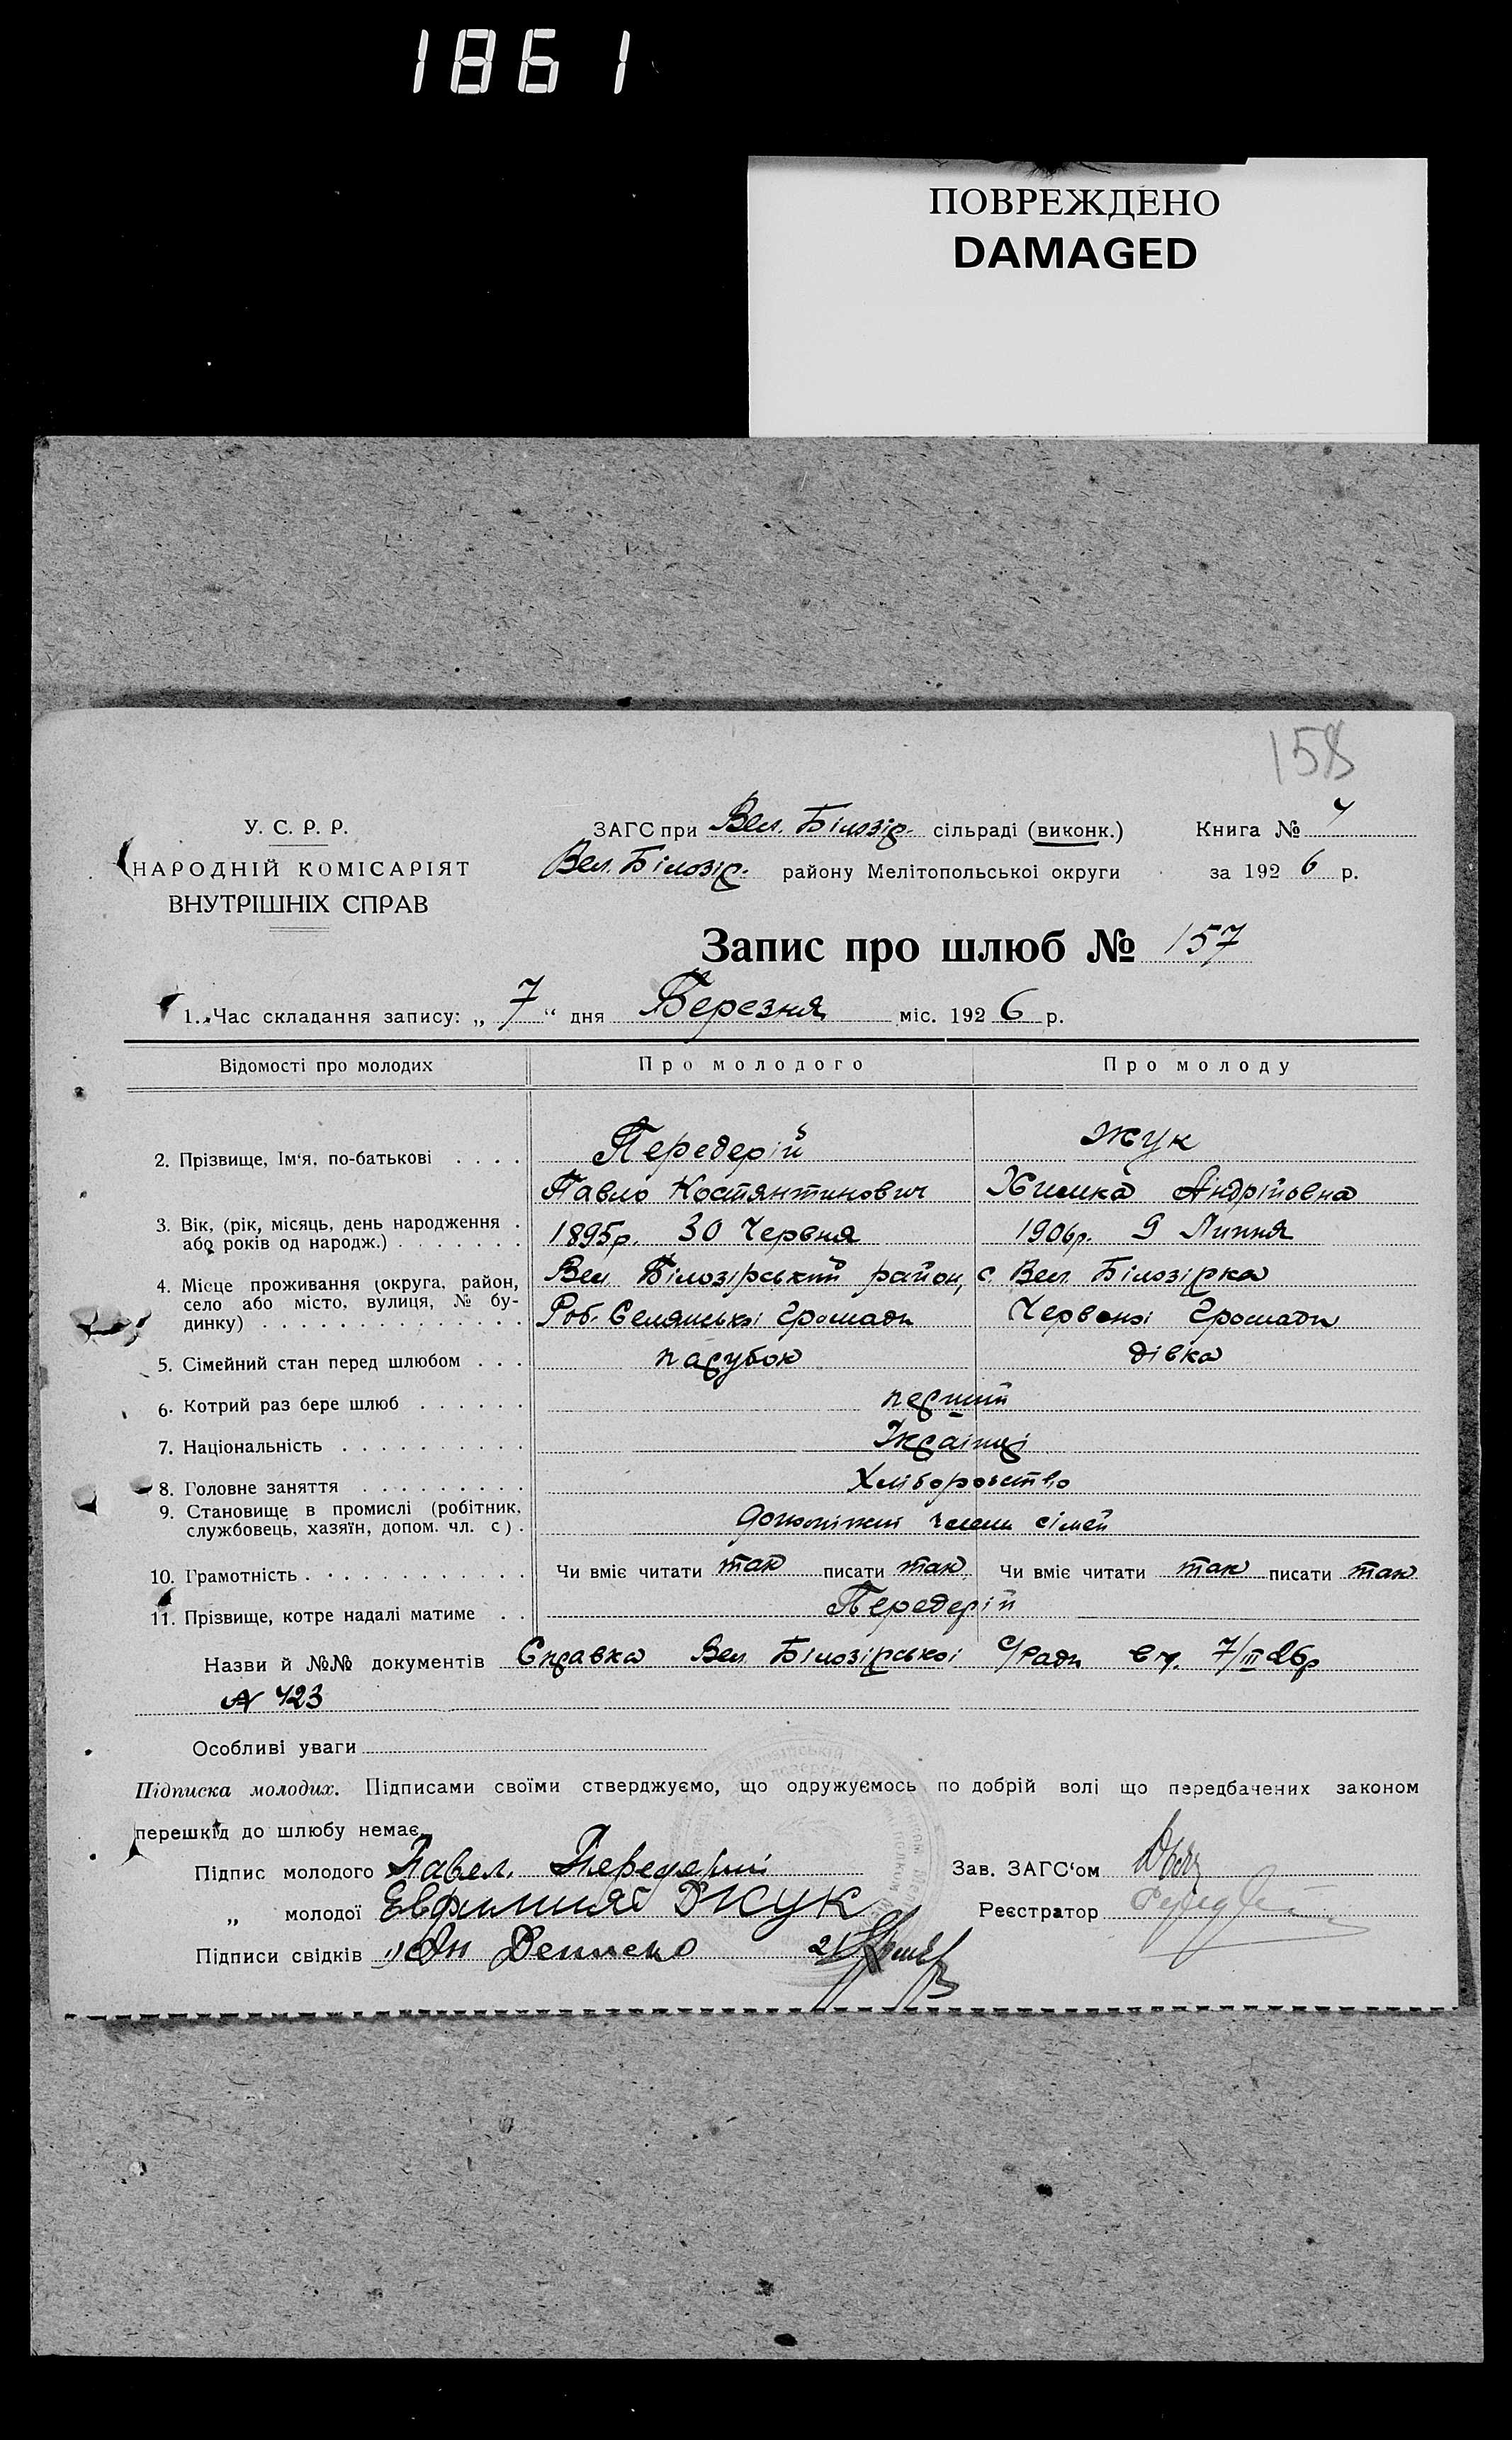 1861
ПОВРЕЖДЕНО
DAMAGED
158
У. С. Р. Р.
НАРОДНІЙ КОМІСАРІЯТ
ВНУТРІШНІХ СПРАВ
ЗАГС при Вел. Білозір. сільраді (виконк.) Книга №
Вел. Білозір. району Мелітопольської округи за 1926 р.
Запис про шлюб № 157
1. Час складання запису: „7“ дня Березня міс. 1926 р.
Відомості про молодих Про молодого Про молоду
2. Прізвище, Ім'я, по-батькові . . . . Передерій Жук
Павло Костянтинович Химка Андріївна
3. Вік, (рік, місяць, день народження . або років од народж.) . . . . . . . 1895р. 30 Червня 1906р. 9 Липня
4. Місце проживання (округа, район, Вел. Білозірський район, с. Вел. Білозірка
село або місто, вулиця, № бу-
динку) . . . . . . . . . . . . . . Роб. Селянської Громади Червоної Громади
5. Сімейний стан перед шлюбом . . . парубок дівка
6. Котрий раз бере шлюб . . . . . . перший
7. Національність . . . . . . . . . . Українці
8. Головне заняття . . . . . . . . . Хліборобство
9. Становище в промислі (робітник,
службовець, хазяїн, допом. чл. с) . допоміжні члени сімей
10. Грамотність . . . . . . . . . . . . Чи вміє читати так писати так Чи вміє читати так писати так
11. Прізвище, котре надалі матиме . . Передерій
Назви й №№ документів Справка Вел. Білозірської С/Ради від 7/III 26р
№ 423
Особливі уваги
Підписка молодих. Підписами своїми стверджуємо, що одружуємось по добрій волі що передбачених законом
перешкід до шлюбу немає.
Підпис молодого Павел. Передерий Зав. ЗАГС'ом
„ молодої Евфимия Жук Реєстратор
Підписи свідків 1) Ан Денисенко 2)